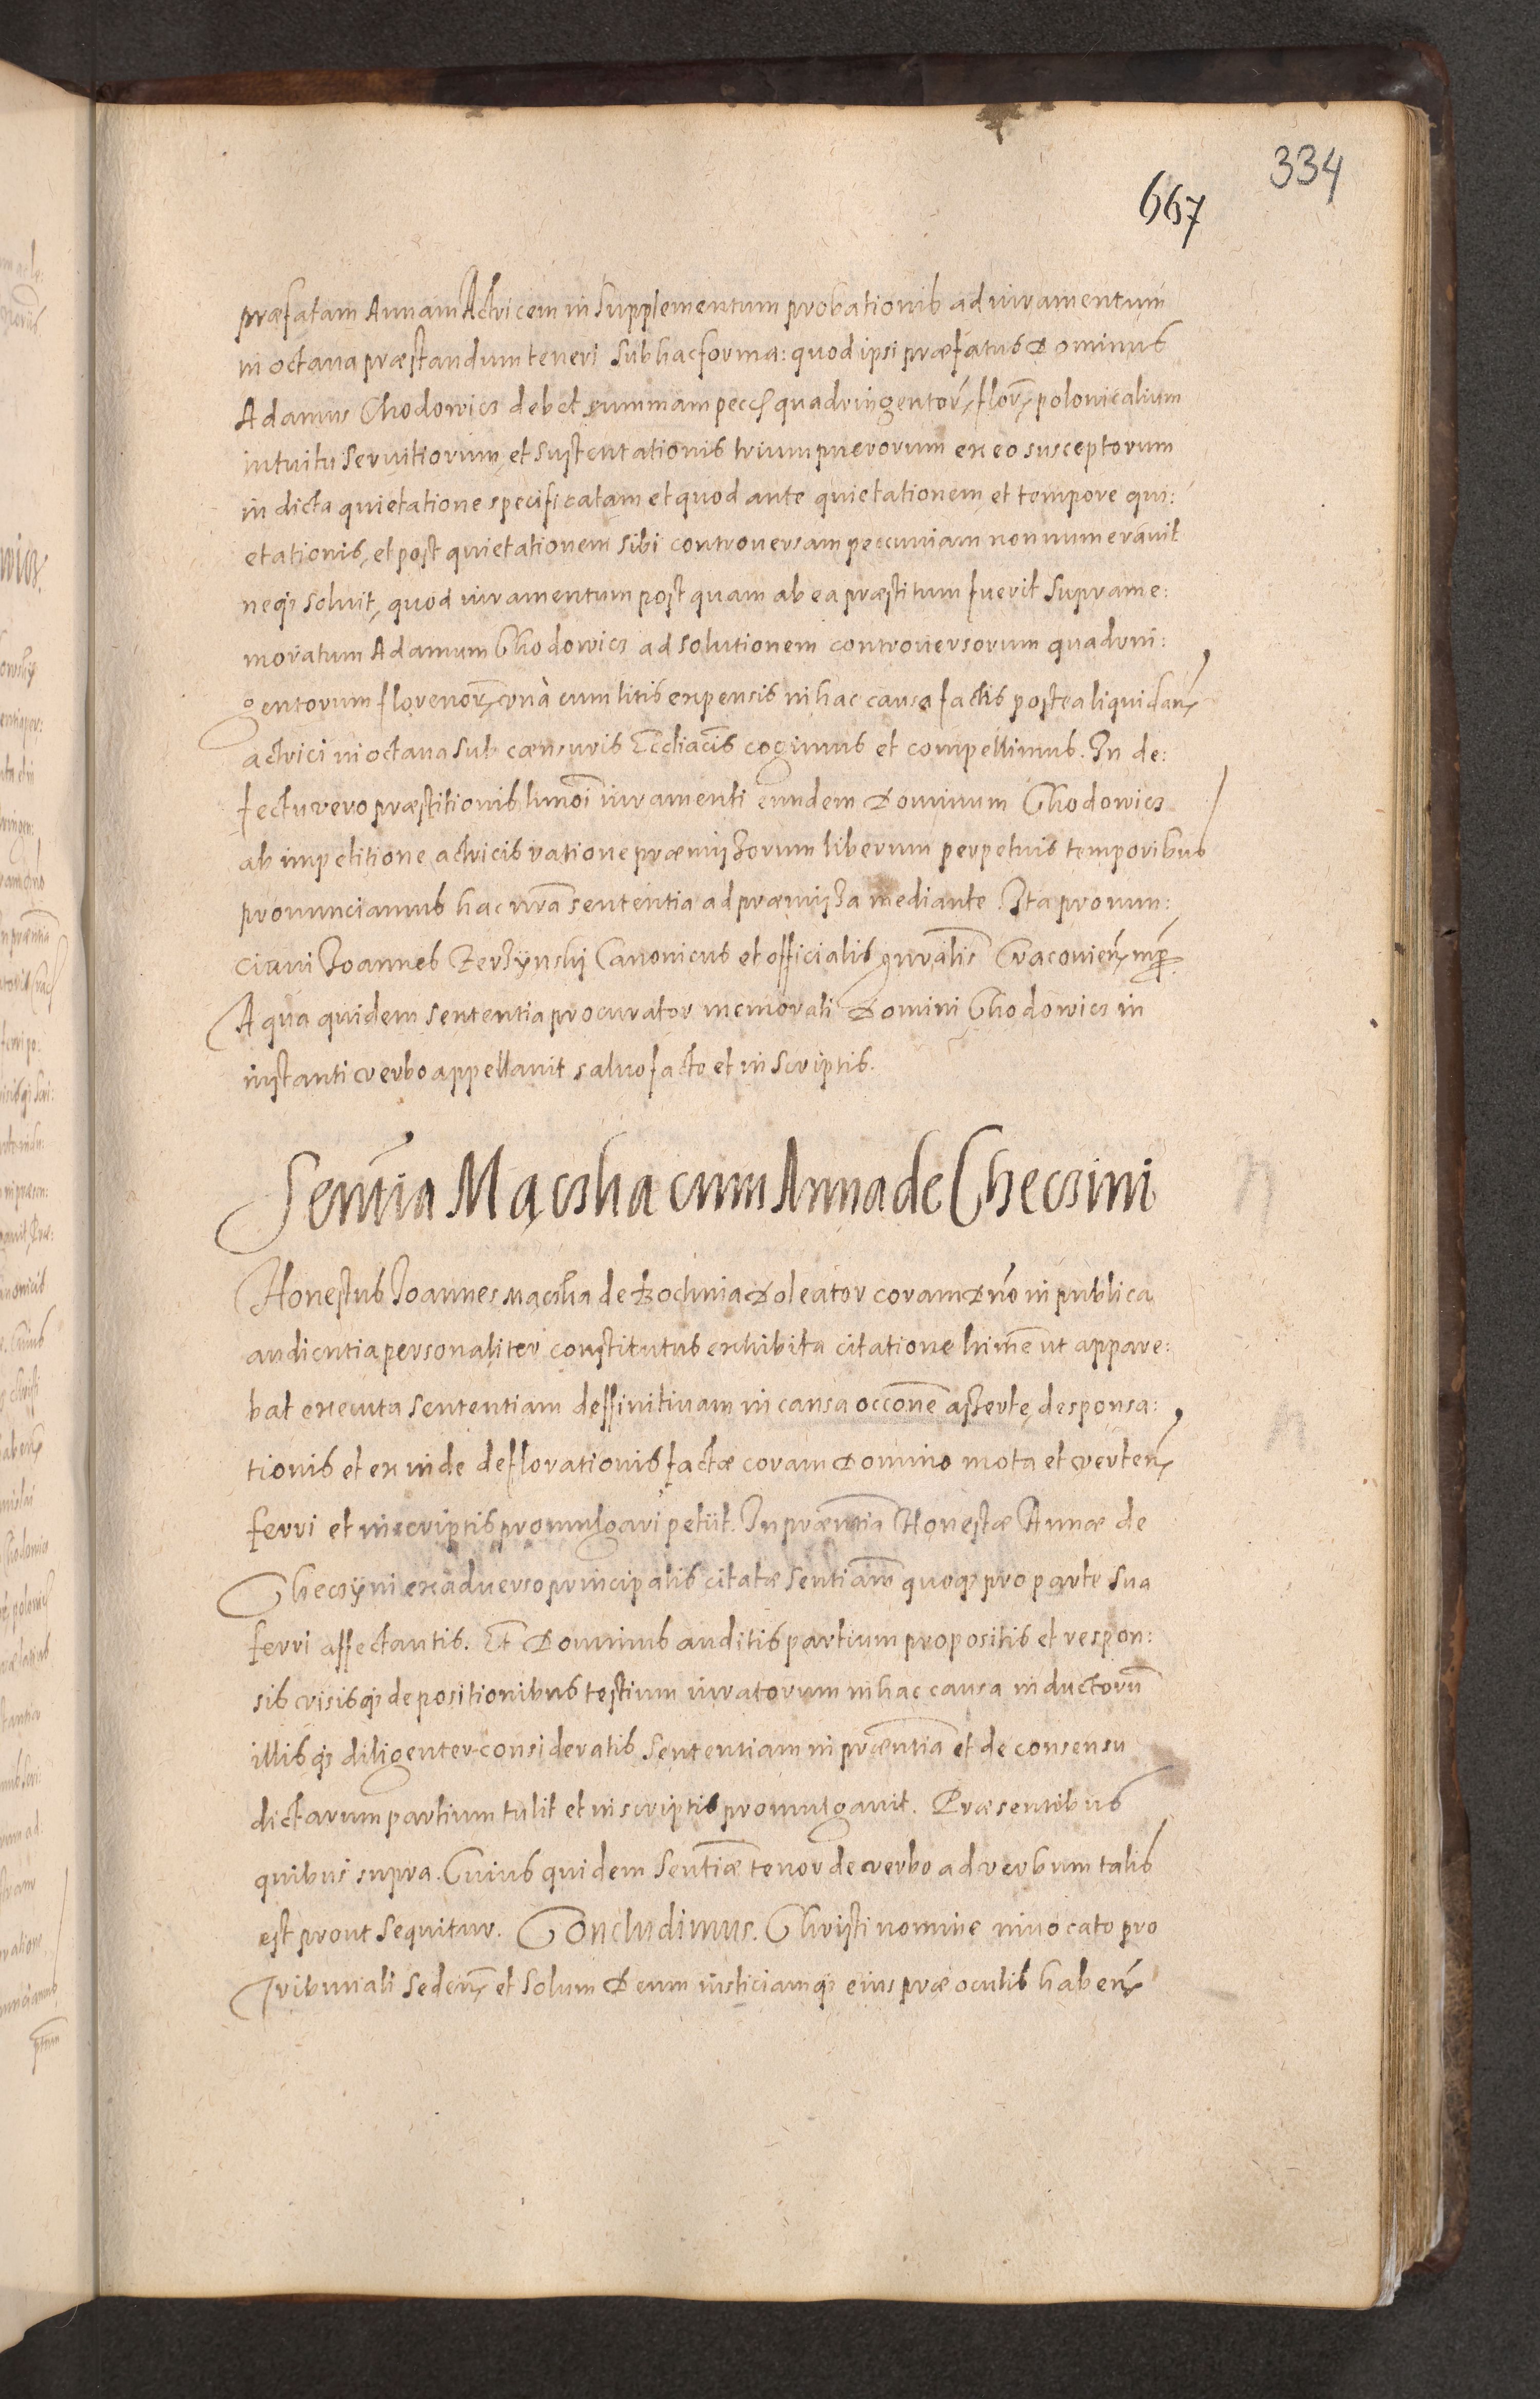 334
667
præfatam Annam Actricem in supplementum probationis ad iuramentum
in octava præstandum teneri sub hac forma: quod ipsi præfatus Dominus
Adamus Chodowicz debet summam pecc quadringentor florē polonicalium
intuitu servitiorum, et sustentationis trium puerorum ex eo susceptorum
in dicta quietatione specificatam et quod ante quietationem et tempore qui:
etationis, et post quietationem sibi controversam peccuniam non numeravit
neq soluit, quod iuramentum postquam ab ea præstitum fuerit suprame:
moratum Adamum Chodowicz ad solutionem controversorum quadrin:
gentorum florenor, vnà cum litis expensis in hac causa factis postea liquidan
actrici in octava sub cænsuris Eccliacis cogimus et compellimus. In de:
fectu vero præstitionis hmoi iuramenti eundem Dominum Chodowicz
ab impetitione actricis ratione præmissorum liberum perpetuis temporibus
pronunciamus hac nra sententia ad præmissa mediante. Ita pronun:
ciavi Joannes Zerzynskij Canonicus et officialis gnralis Cracovien mp
A qua quidem sententia procurator memorati Domini Chodowicz in
instanti verbo appellavit salvo facto et in scriptis.
Senttia Mączka cum Anna de Checzini
Honestus Joannes Mączka de Bochnia Doleator coram Dno in publica
audientia personaliter constitutus exhibita citatione himē ut appare:
bat executa sententiam deffinitivam in causa occone assertę desponsa:
tionis et exinde deflorationis factæ coram Domino mota et verten
ferri et in scriptis promulgari petiit. In præntia Honestæ Annæ de
Checzÿni ex adverso principalis citatæ sentiam quoq pro parte sua
ferri affectantis. Et Dominus auditis partium propositis et respon:
sis visisq depositionibus testium iuratorum in hac causa inductorū
illisq diligenter consideratis sententiam in præntia et de consensu
dictarum partium tulit et in scriptis promulgavit. Præsentibus
quibus supra. Cuius quidem sentiæ tenor de verbo ad verbum talis
est prout sequitur. Concludimus. Christi nomine invocato pro
Tribunali seden et solum Deum iusticiamq eius præ oculis haben